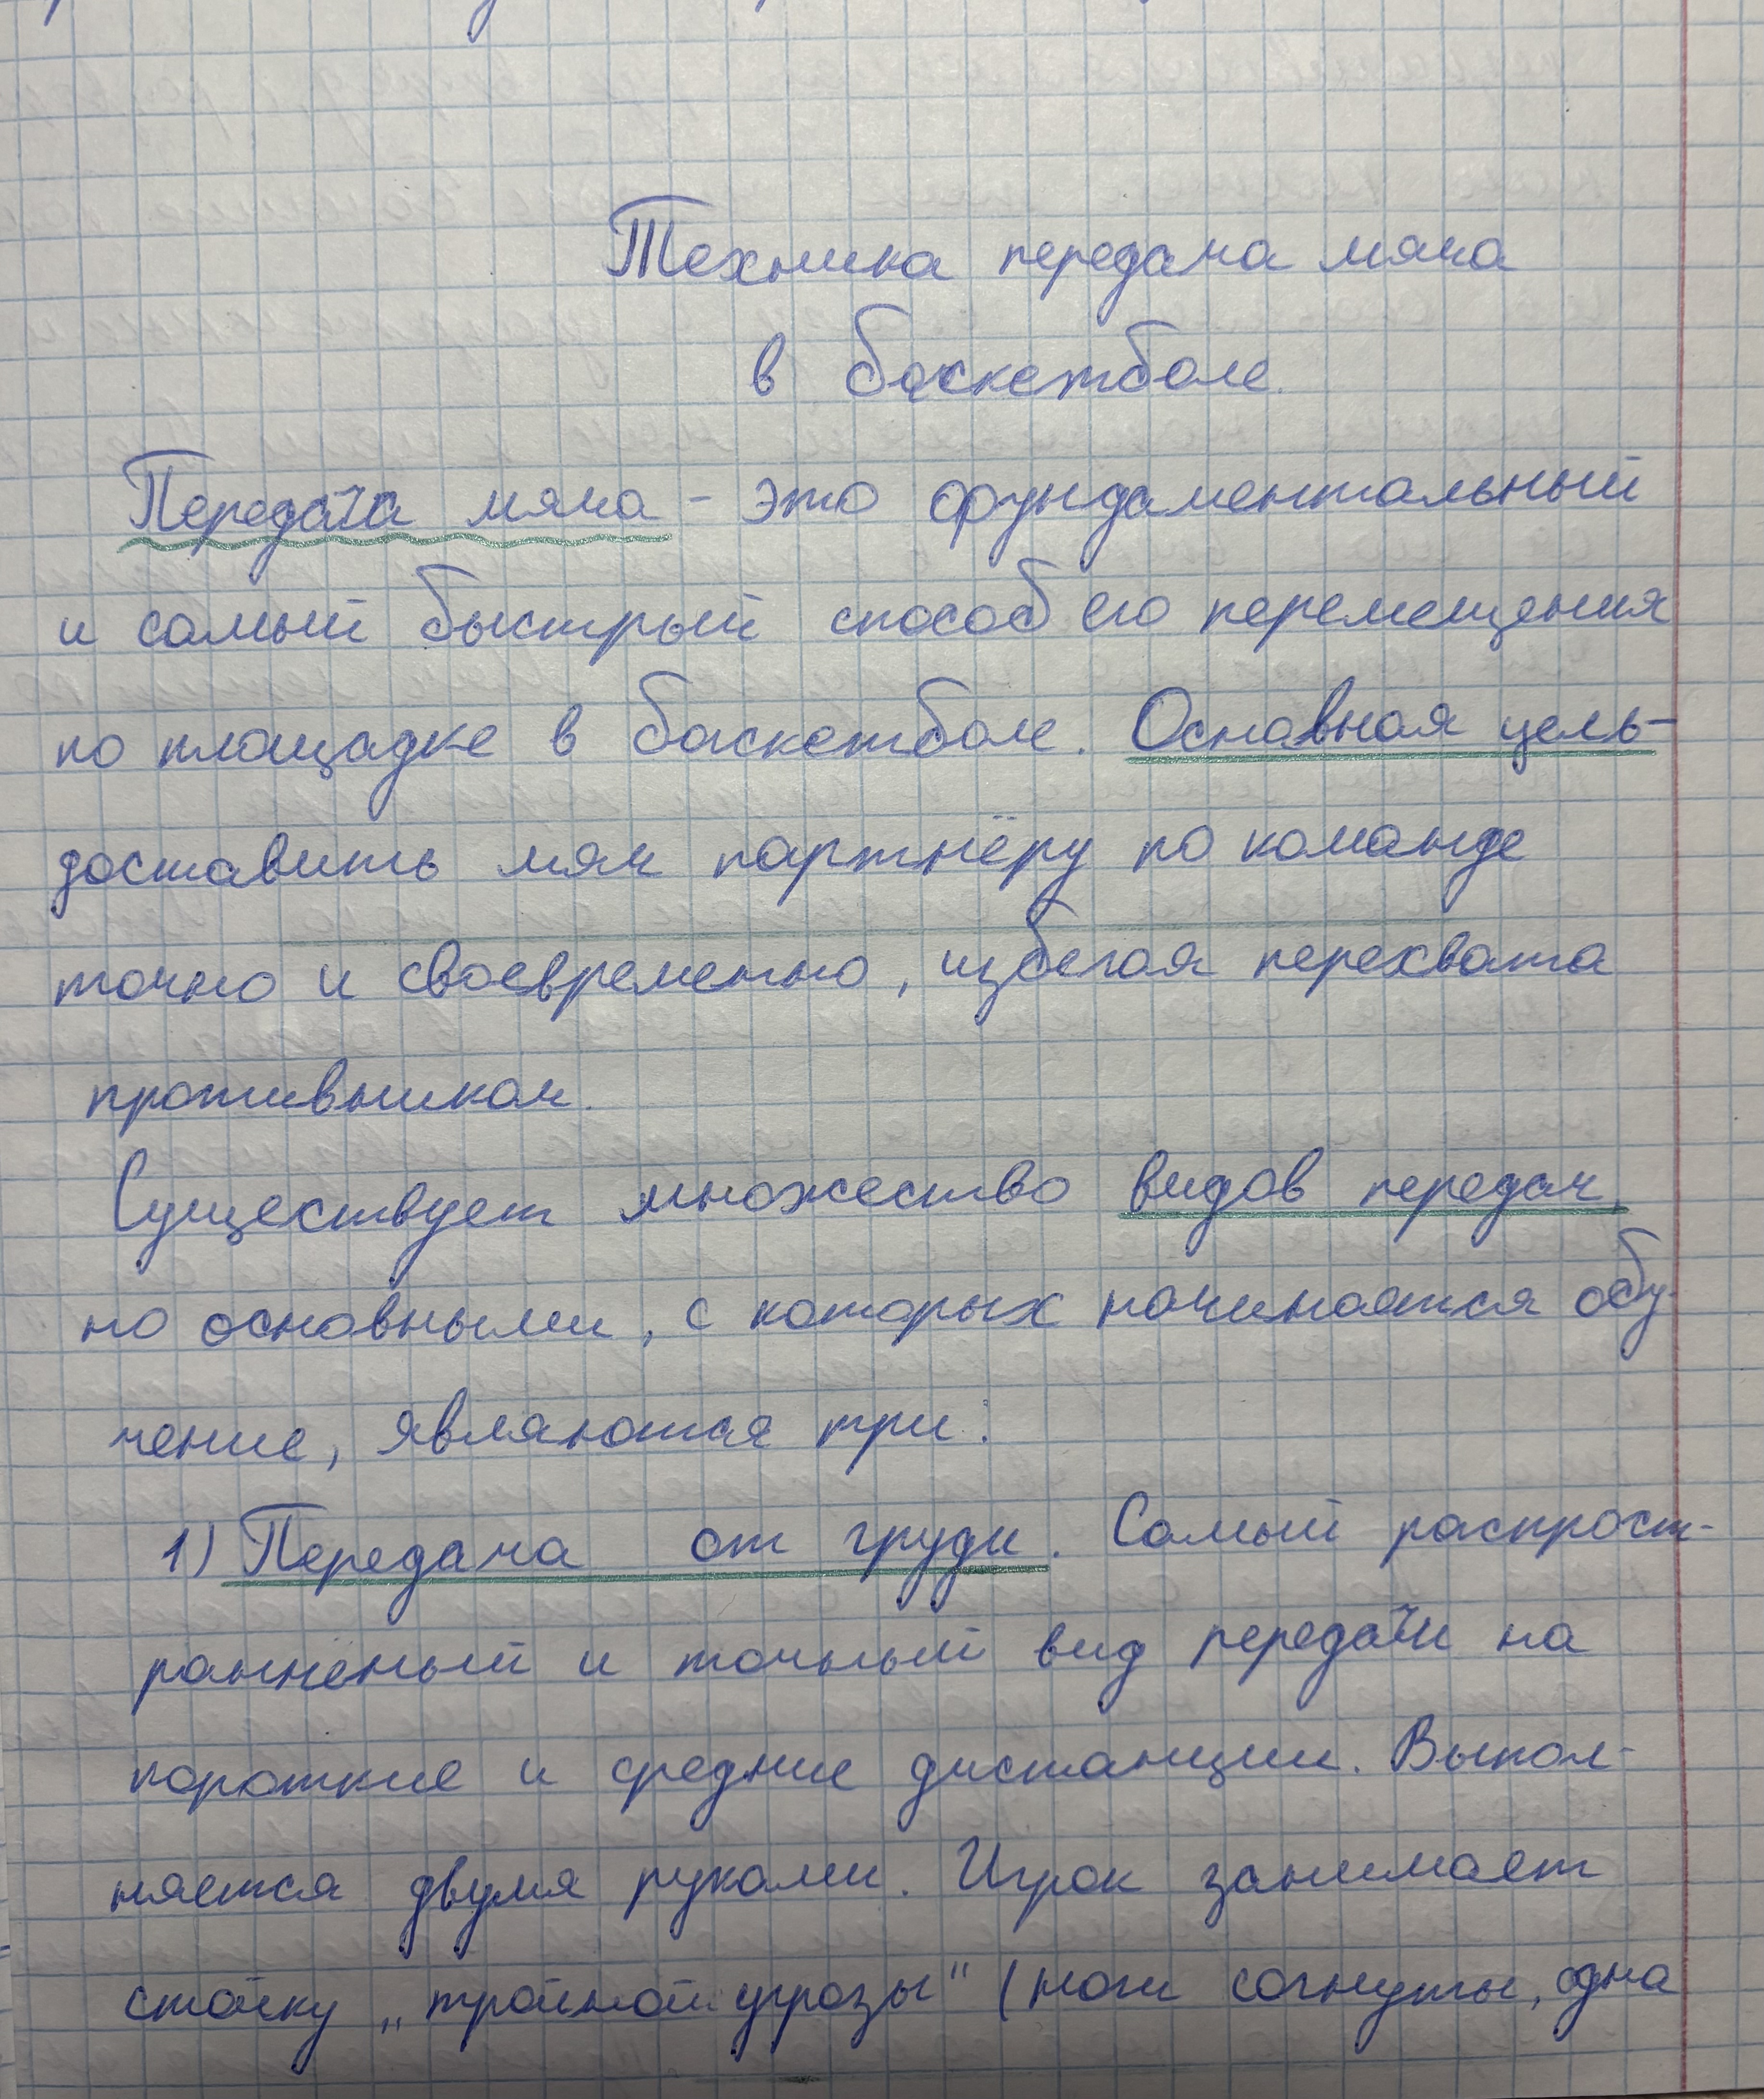 Техника передача мяча
в баскетболе.
Передача мяча - это фундаментальный
и самый быстрый способ его перемещения
по площадке в баскетболе. Основная цель-
доставить мяч партнёру по команде
точно и своевременно, избегая перехвата
противником.
Существует множество видов передач,
но основными, с которых начинается обу-
чение, являются три:
1) Передача от груди. Самый распрост-
ранненый и точный вид передачи на
короткие и средние дистанции. Выпол-
няется двумя руками. Игрок занимает
стойку „тройной угрозы" (ноги согнуты, одна